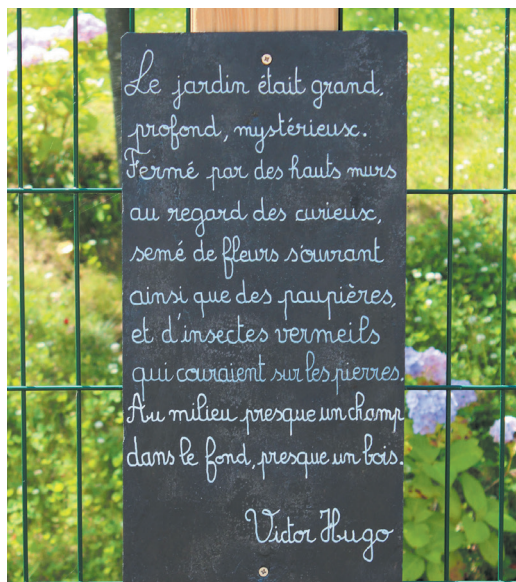 Le jardin était grand,
profond, mystérieux.
Fermé par des hauts murs
au regard des curieux,
semé de fleurs s'ouvrant
ainsi que des paupières,
et d'insectes vermeils
qui couraient sur les pierres.
Au milieu presque un champ
dans le fond, presque un bois.
Victor Hugo